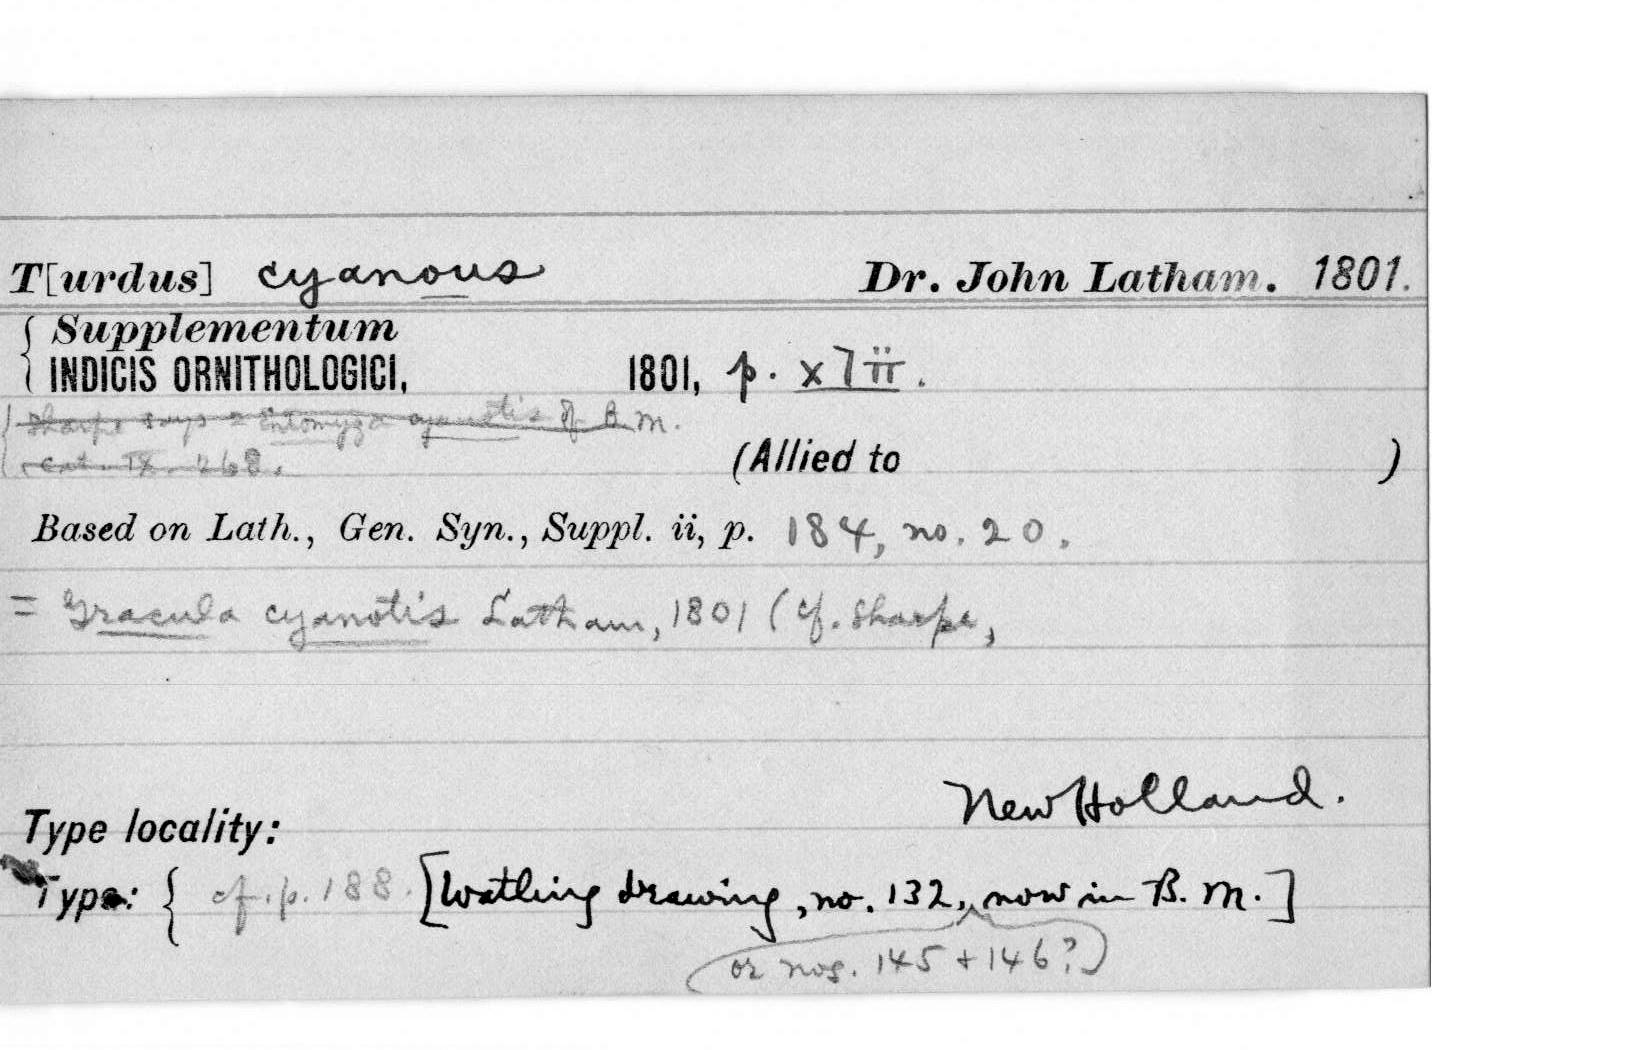 T[urdus] cyanous Dr. John Latham. 1801.
Supplementum
INDICIS ORNITHOLOGICI, 1801, p. xlii.
Sharpe says = Entomyza cyanotis of B. M.
Cat. IX. 268.
(Allied to )
Based on Lath., Gen. Syn., Suppl. ii, p. 184, no. 20.
= Gracula cyanotis Latham, 1801 (cf. Sharpe,
New Holland.
Type locality:
Type: { cf. p. 188. [Watling drawing, no. 132, now in B. M.]
(or nos. 145 + 146?)